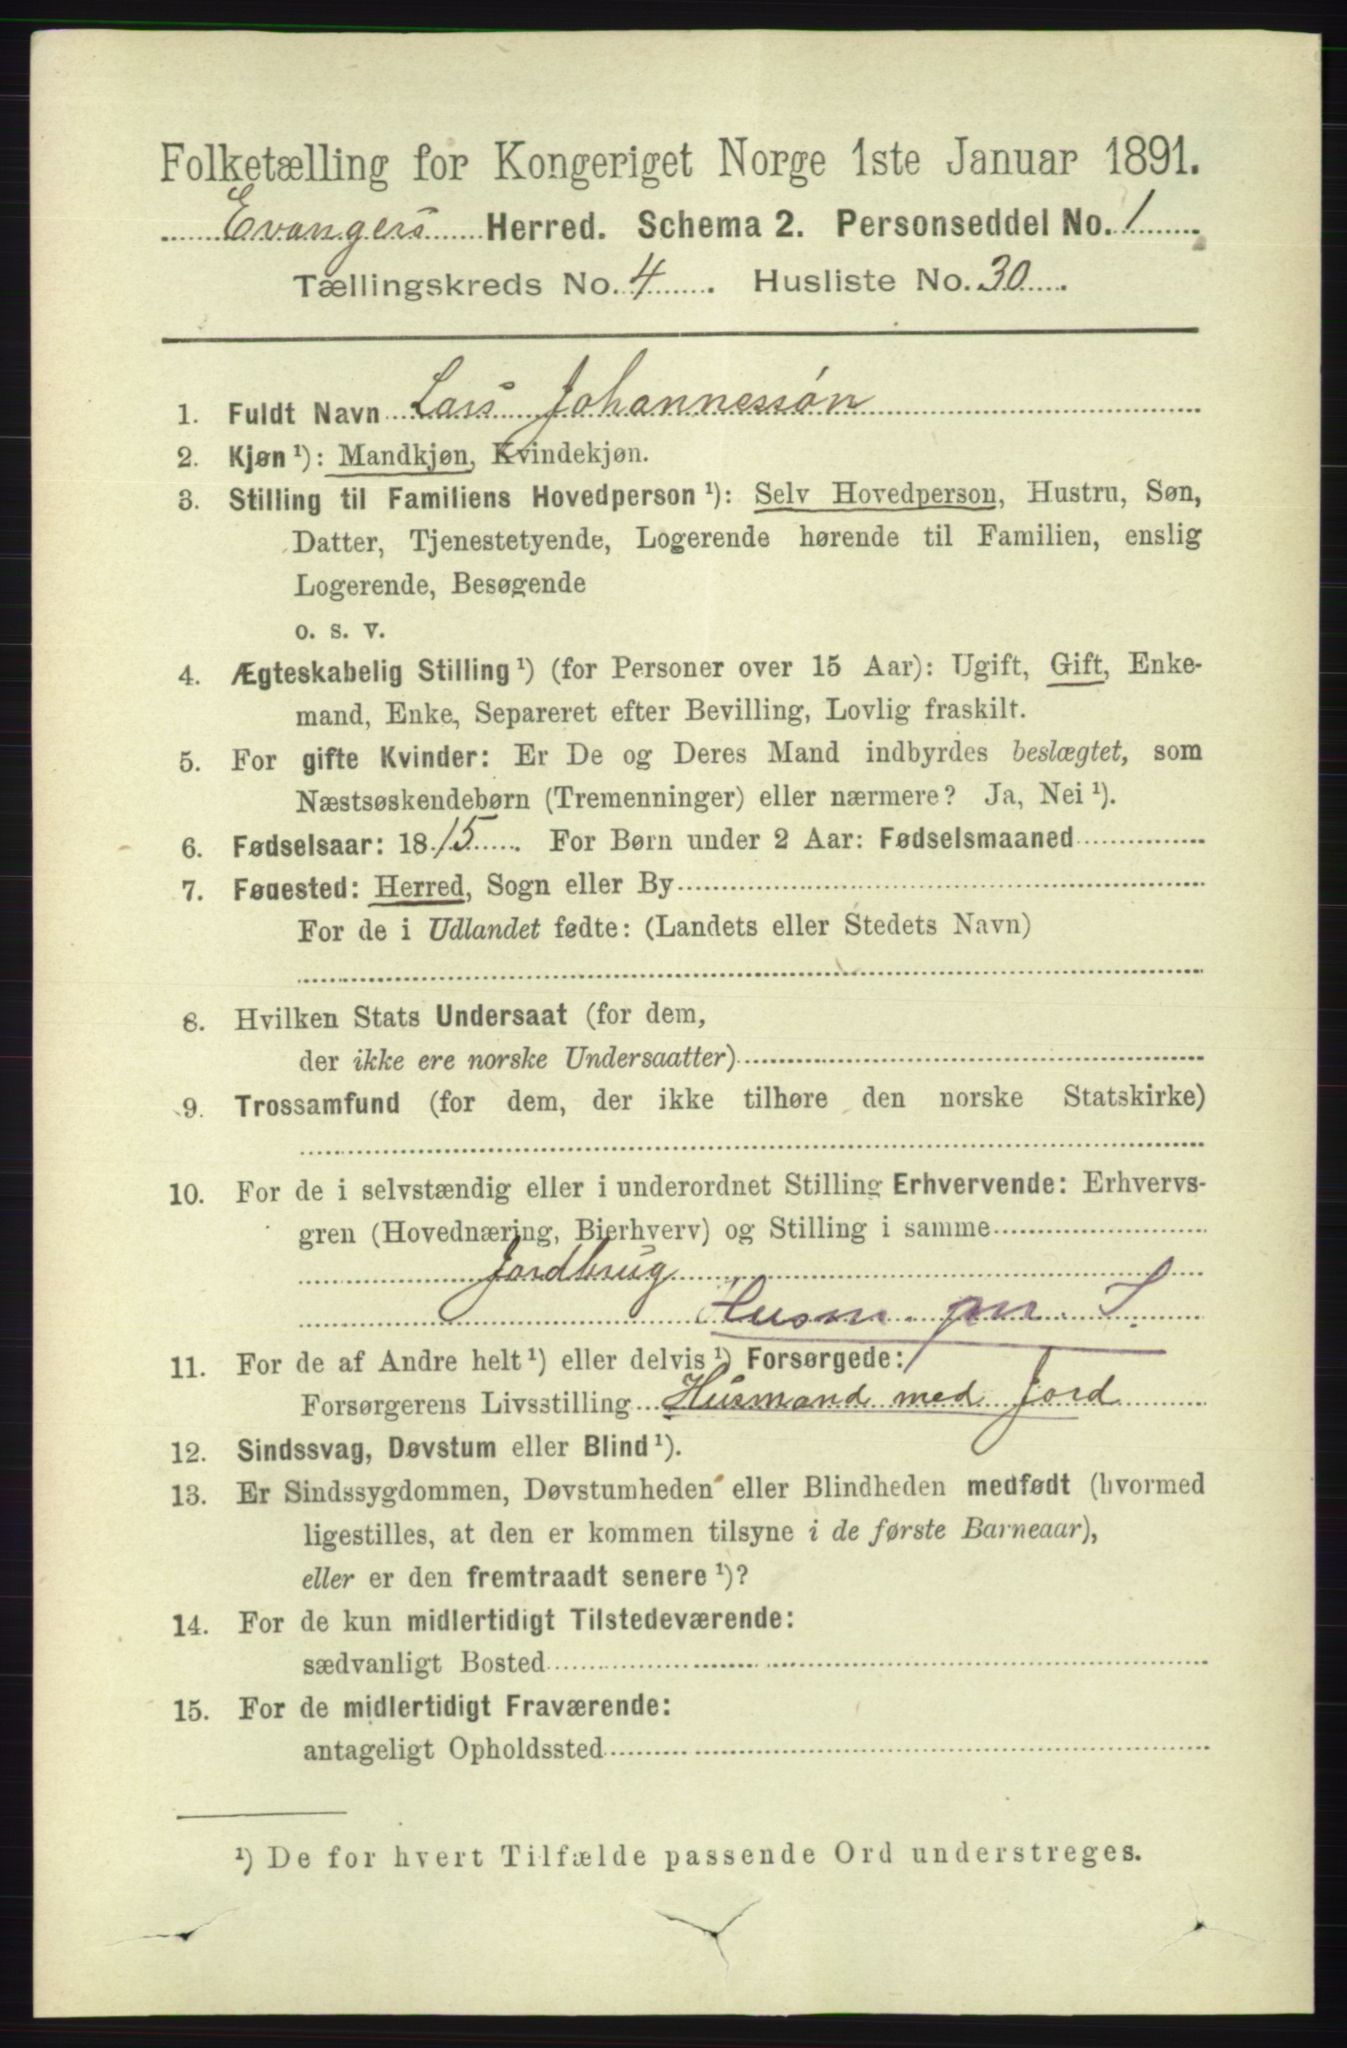 Folketælling for Kongeriget Norge 1ste Januar 1891.
Evangers Herred. Schema 2. Personseddel No. 1
Tællingskreds No. 4. Husliste No. 30.
1. Fuldt Navn Lars Johannessøn
2. Kjøn ¹): Mandkjøn, Kvindekjøn.
3. Stilling til Familiens Hovedperson ¹): Selv Hovedperson, Hustru, Søn,
Datter, Tjenestetyende, Logerende hørende til Familien, enslig
Logerende, Besøgende
o. s. v.
4. Ægteskabelig Stilling ¹) (for Personer over 15 Aar): Ugift, Gift, Enke-
mand, Enke, Separeret efter Bevilling, Lovlig fraskilt.
5. For gifte Kvinder: Er De og Deres Mand indbyrdes beslægtet, som
Næstsøskendebørn (Tremenninger) eller nærmere? Ja, Nei ¹).
6. Fødselsaar: 1815. For Børn under 2 Aar: Fødselsmaaned
7. Føuested: Herred, Sogn eller By
For de i Udlandet fødte: (Landets eller Stedets Navn)
8. Hvilken Stats Undersaat (for dem,
der ikke ere norske Undersaatter)
9. Trossamfund (for dem, der ikke tilhøre den norske Statskirke)
10. For de i selvstændig eller i underordnet Stilling Erhvervende: Erhvervs-
gren (Hovednæring, Bierhverv) og Stilling i samme
Jordbrug
Husm.
11. For de af Andre helt ¹) eller delvis ¹) Forsørgede:
Forsørgerens Livsstilling Husmand med Jord
12. Sindssvag, Døvstum eller Blind ¹).
13. Er Sindssygdommen, Døvstumheden eller Blindheden medfødt (hvormed
ligestilles, at den er kommen tilsyne i de første Barneaar),
eller er den fremtraadt senere ¹)?
14. For de kun midlertidigt Tilstedeværende:
sædvanligt Bosted
15. For de midlertidigt Fraværende:
antageligt Opholdssted
¹) De for hvert Tilfælde passende Ord understreges.